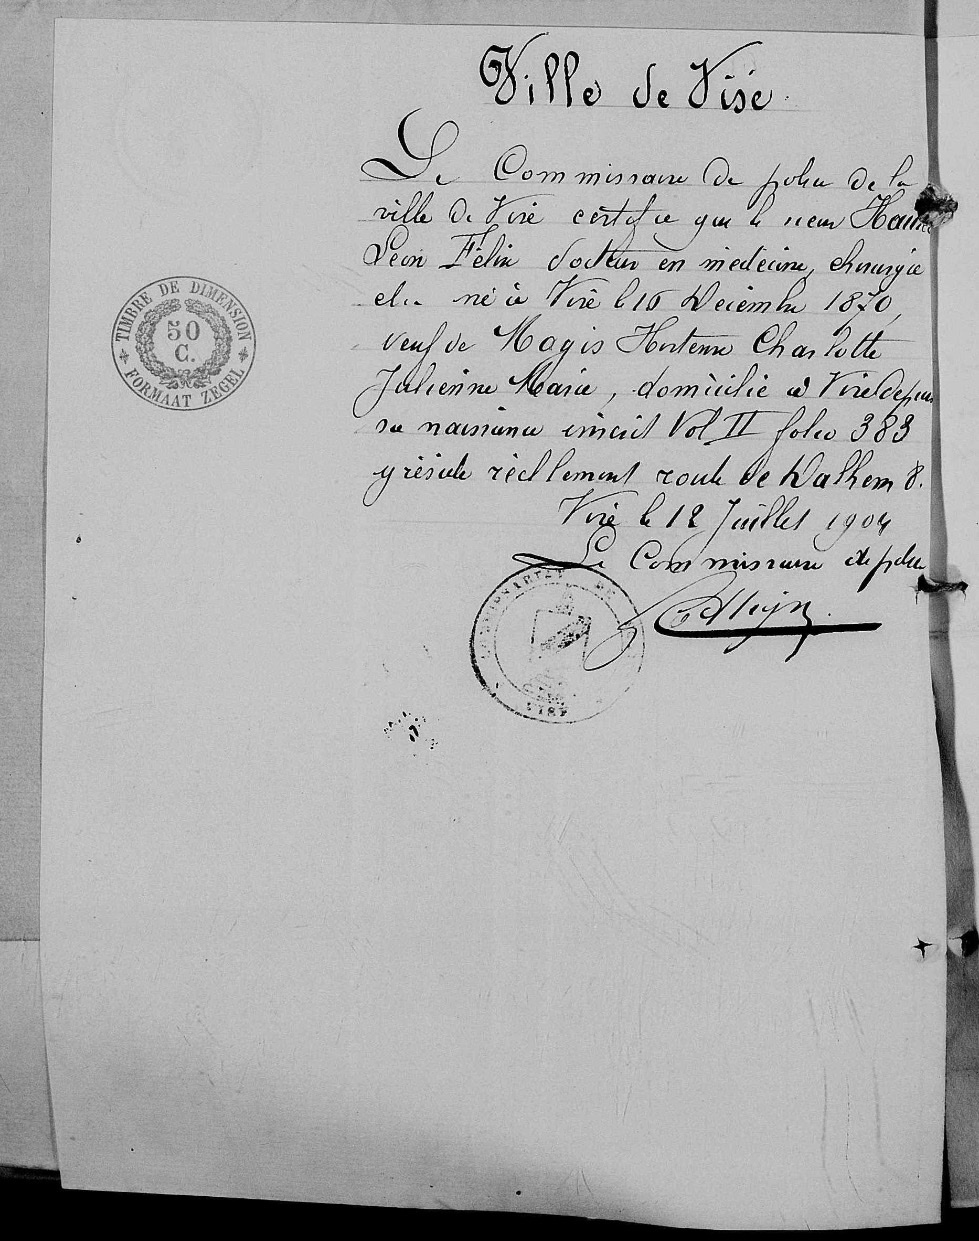 Ville de Visé
Le Commissaire de police de la
ville de Visé certifie que le sieur
Léon Félix docteur en médecine, chirurgie
etc. né à Visé le 16 Décembre 1870,
veuf de Magis Hortense Charlotte
Julienne Marie, domicilié à Visé depuis
sa naissance inscrit Vol II folio 383
y réside réellement route de Dalhem 8.
Visé le 12 Juillet 1904
Le Commissaire de police
TIMBRE DE DIMENSION
50
C.
FORMAAT ZEGEL
COMMISSARIAT DE
VISÉ